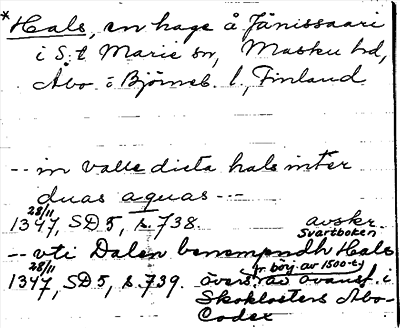 *Hals, en hage å Jänissaari
i S:t Marie sn, Masku hd,
Åbo o Björneb. l, Finland
-- in valle dicta hals inter
duas aquas ---
28/11
1347, SD 5, s. 738. avskr.
Svartboken
-- vti Dalen benempndh Hals
28/11 fr börj. av 1500-t
1347, SD 5, s. 739. övers. av ovanst. i
Skoklosters Åbo-
Codex